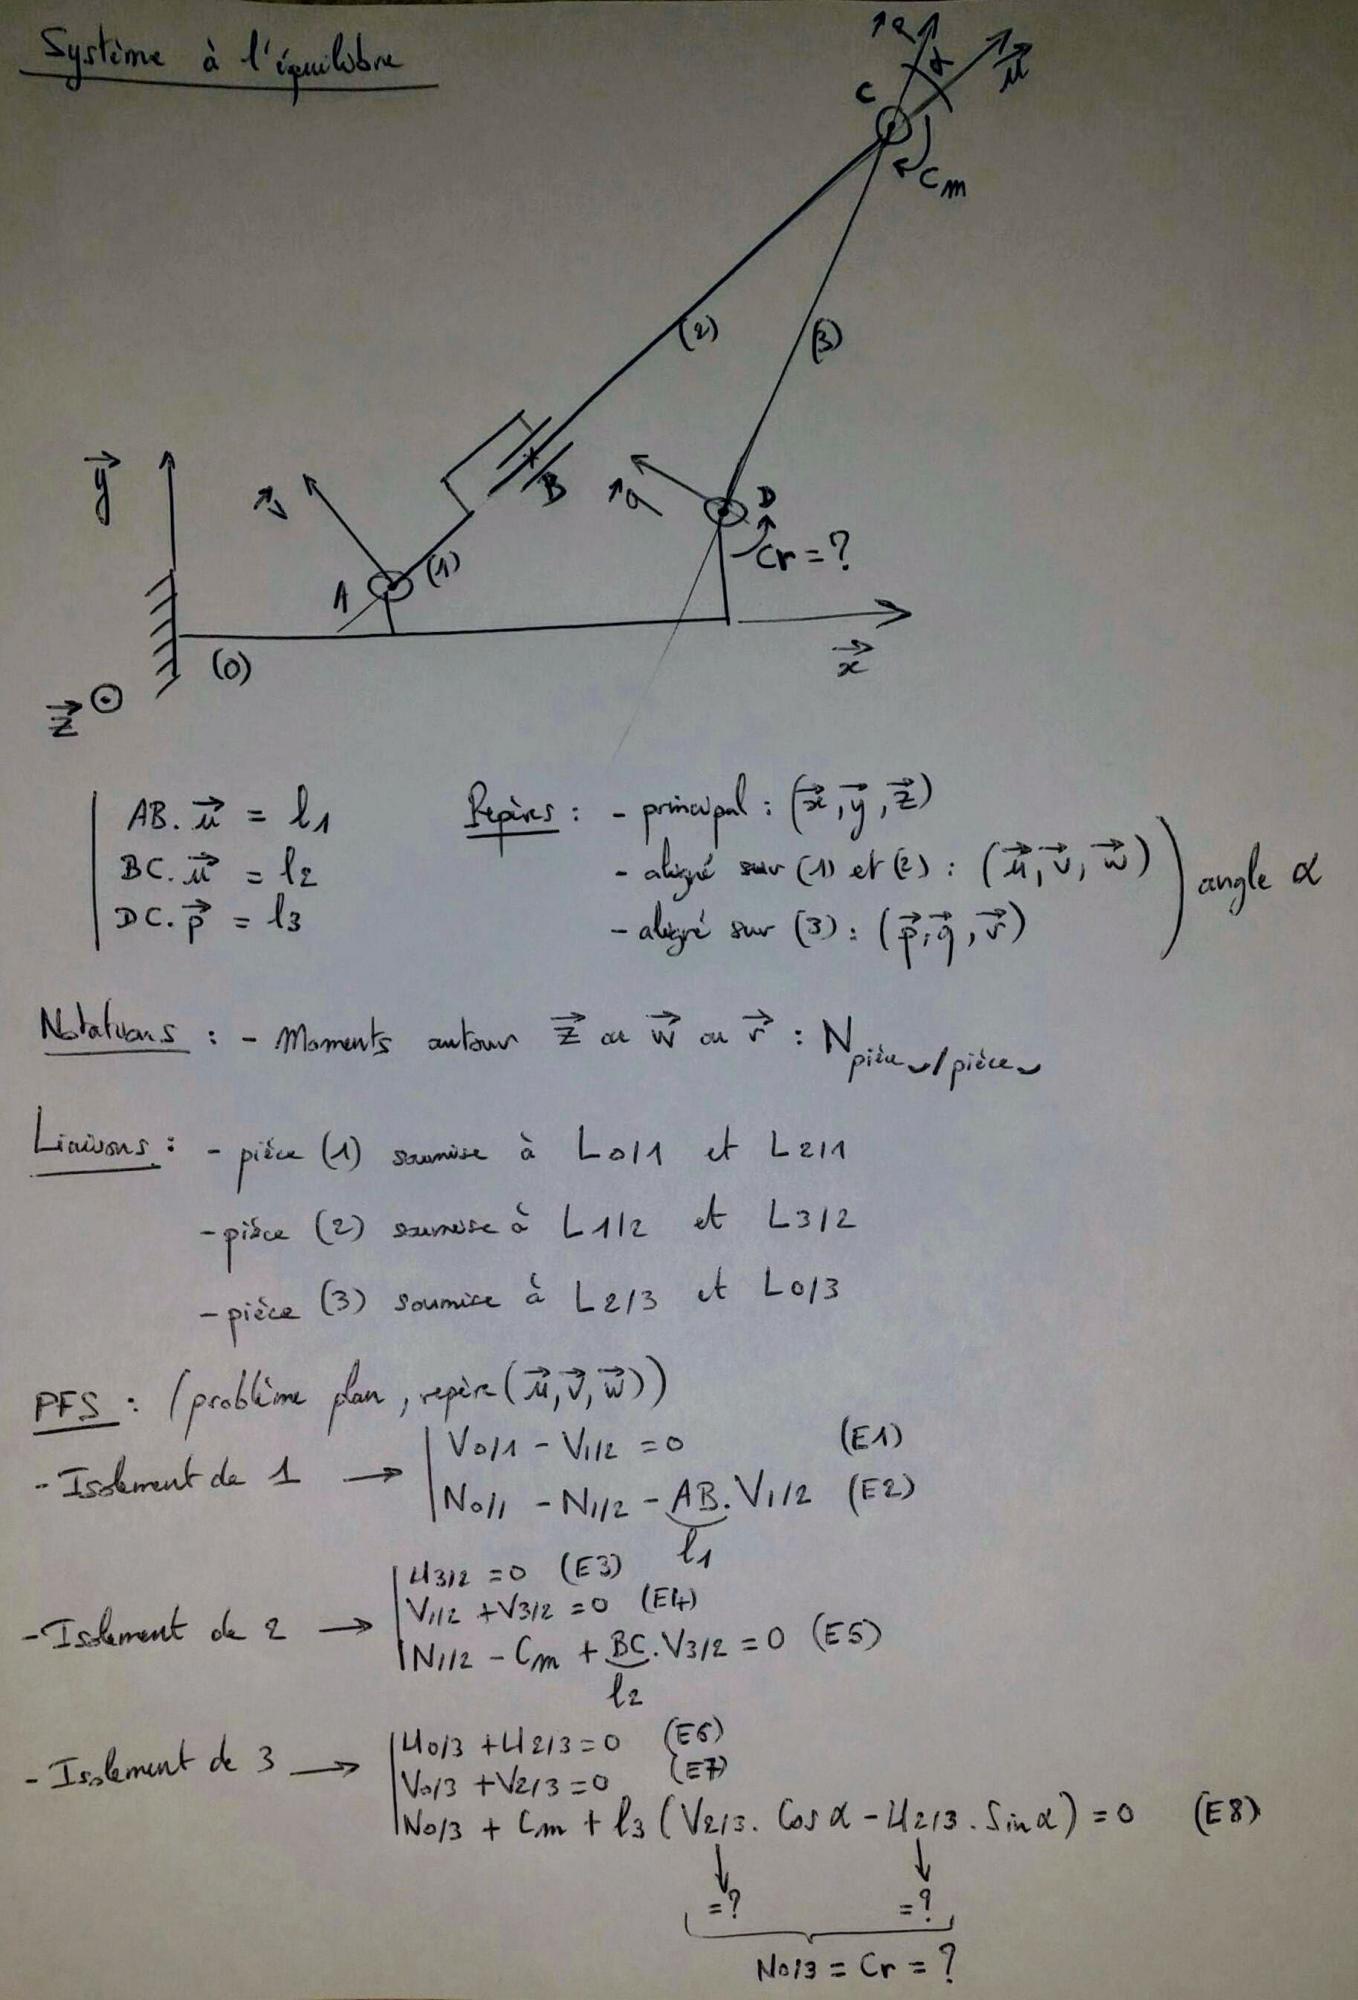 Système à l'équilibre
C
p
α
u
Cm
(2)
(3)
y
v
B
q
D
Cr = ?
A
(1)
(0)
x
z
AB. u = l1
BC. u = l2
DC. p = l3
Repères : - principal : (x, y, z)
- aligné sur (1) et (2) : (u, v, w)
- aligné sur (3) : (p, q, r)
angle α
Notations : - Moments autour z ou w ou r : N pièce/pièce
Liaisons : - pièce (1) soumise à L0/1 et L2/1
- pièce (2) soumise à L1/2 et L3/2
- pièce (3) soumise à L2/3 et L0/3
PFS : (problème plan, repère (u, v, w))
- Isolement de 1 → V0/1 - V1/2 = 0 (E1)
N0/1 - N1/2 - AB. V1/2 (E2)
l1
- Isolement de 2 → U3/2 = 0 (E3)
V1/2 + V3/2 = 0 (E4)
N1/2 - Cm + BC. V3/2 = 0 (E5)
l2
- Isolement de 3 → U0/3 + U2/3 = 0 (E6)
V0/3 + V2/3 = 0 (E7)
N0/3 + Cm + l3 (V2/3. Cos α - U2/3. Sin α) = 0 (E8)
= ? = ?
N0/3 = Cr = ?